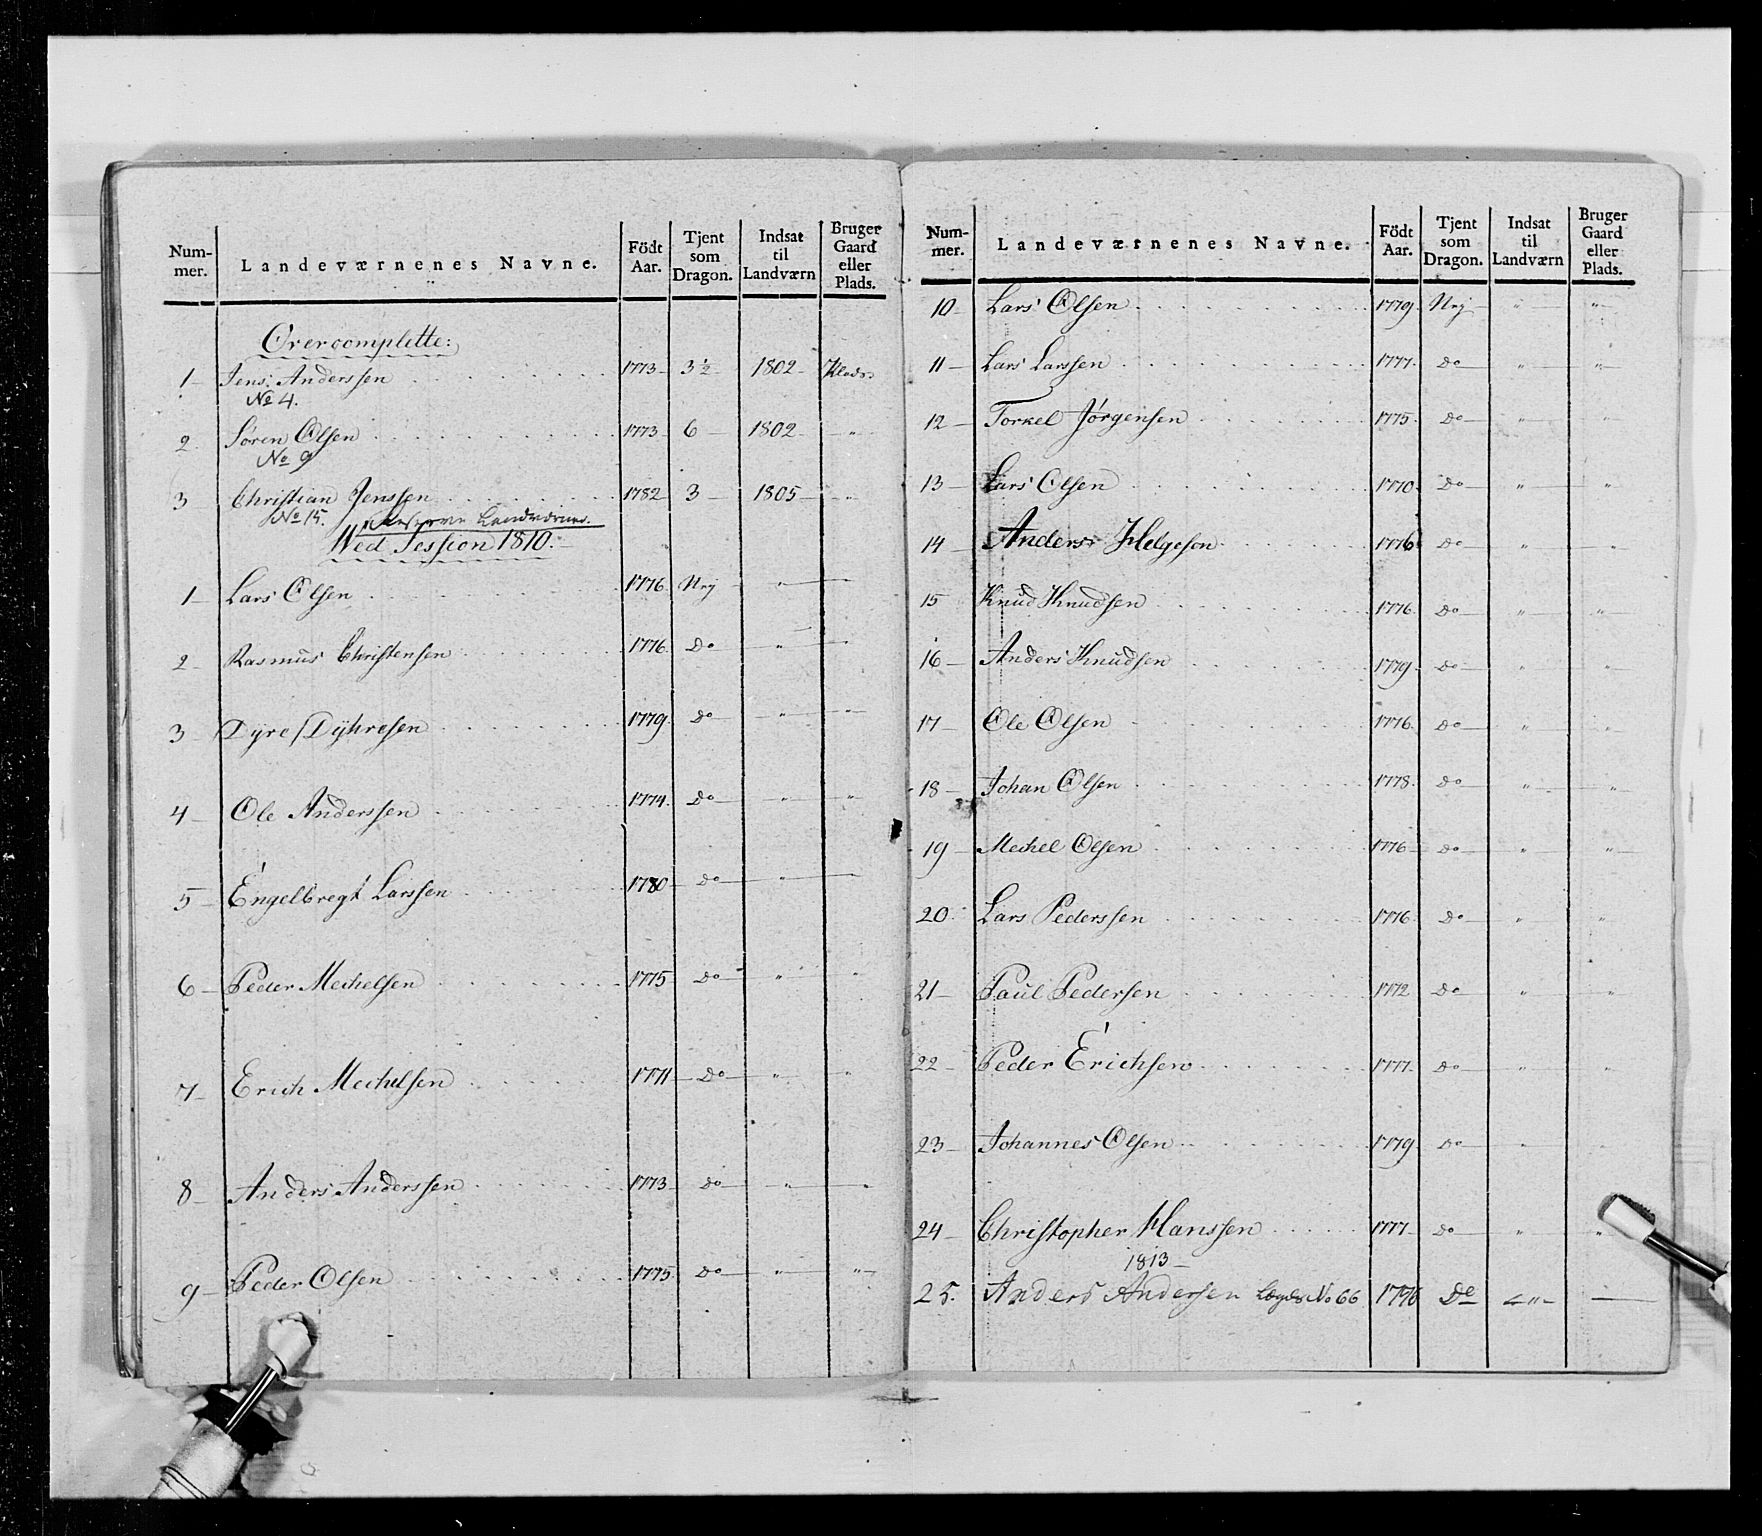 Num-mer. Landeværnenes Navne. Födt Aar. Tjent som Dragon. Indsat til Landværn Bruger Gaard eller Plads.
Overcomplette:
1 Jens Anderssen 1773 3½ 1802
No 4.
2 Søren Olsen 1773 6 1802 "
No 9
3 Christian Jenssen 1782 3 1805 "
No 15. Reserve Landværnet.
Wed Session 1810.
1 Lars Olsen 1776 Nÿ "
2 Rasmus Christensen 1776 Do "
3 Dyre Dÿhresen 1779 Do " "
4 Ole Anderssen 1774 Do " "
5 Engelbregt Larssen 1780 Do "
6 Peder Mechelsen 1775 Do " "
7 Erich Mechelsen 1771 Do " "
8 Anders Anderssen 1773 Do " "
9 Peder Olsen 1775 Do " "
Num-mer. Landeværnenes Navne. Födt Aar. Tjent som Dragon. Indsat til Landværn Bruger Gaard eller Plads.
10 Lars Olsen 1779 Nÿ " "
11 Lars Larssen 1777 Do " "
12 Torkel Jørgensen 1775 Do " "
13 Lars Olsen 1770 Do " "
14 Anders Helgeson 1776 Do " "
15 Knud Knudsen 1776 Do " "
16 Anders Knudsen 1779 Do " "
17 Ole Olsen 1776 Do " "
18 Johan Olsen 1778 Do " "
19 Mechel Olsen 1776 Do " "
20 Lars Pederssen 1776 Do " "
21 Paul Pedersen 1772 Do " "
22 Peder Erichsen 1777 Do " "
23 Johannes Olsen 1779 Do " "
24 Christopher Hanssen 1777 Do " "
1813
25. Anders Andersen Lægds No 66 1776 Do "